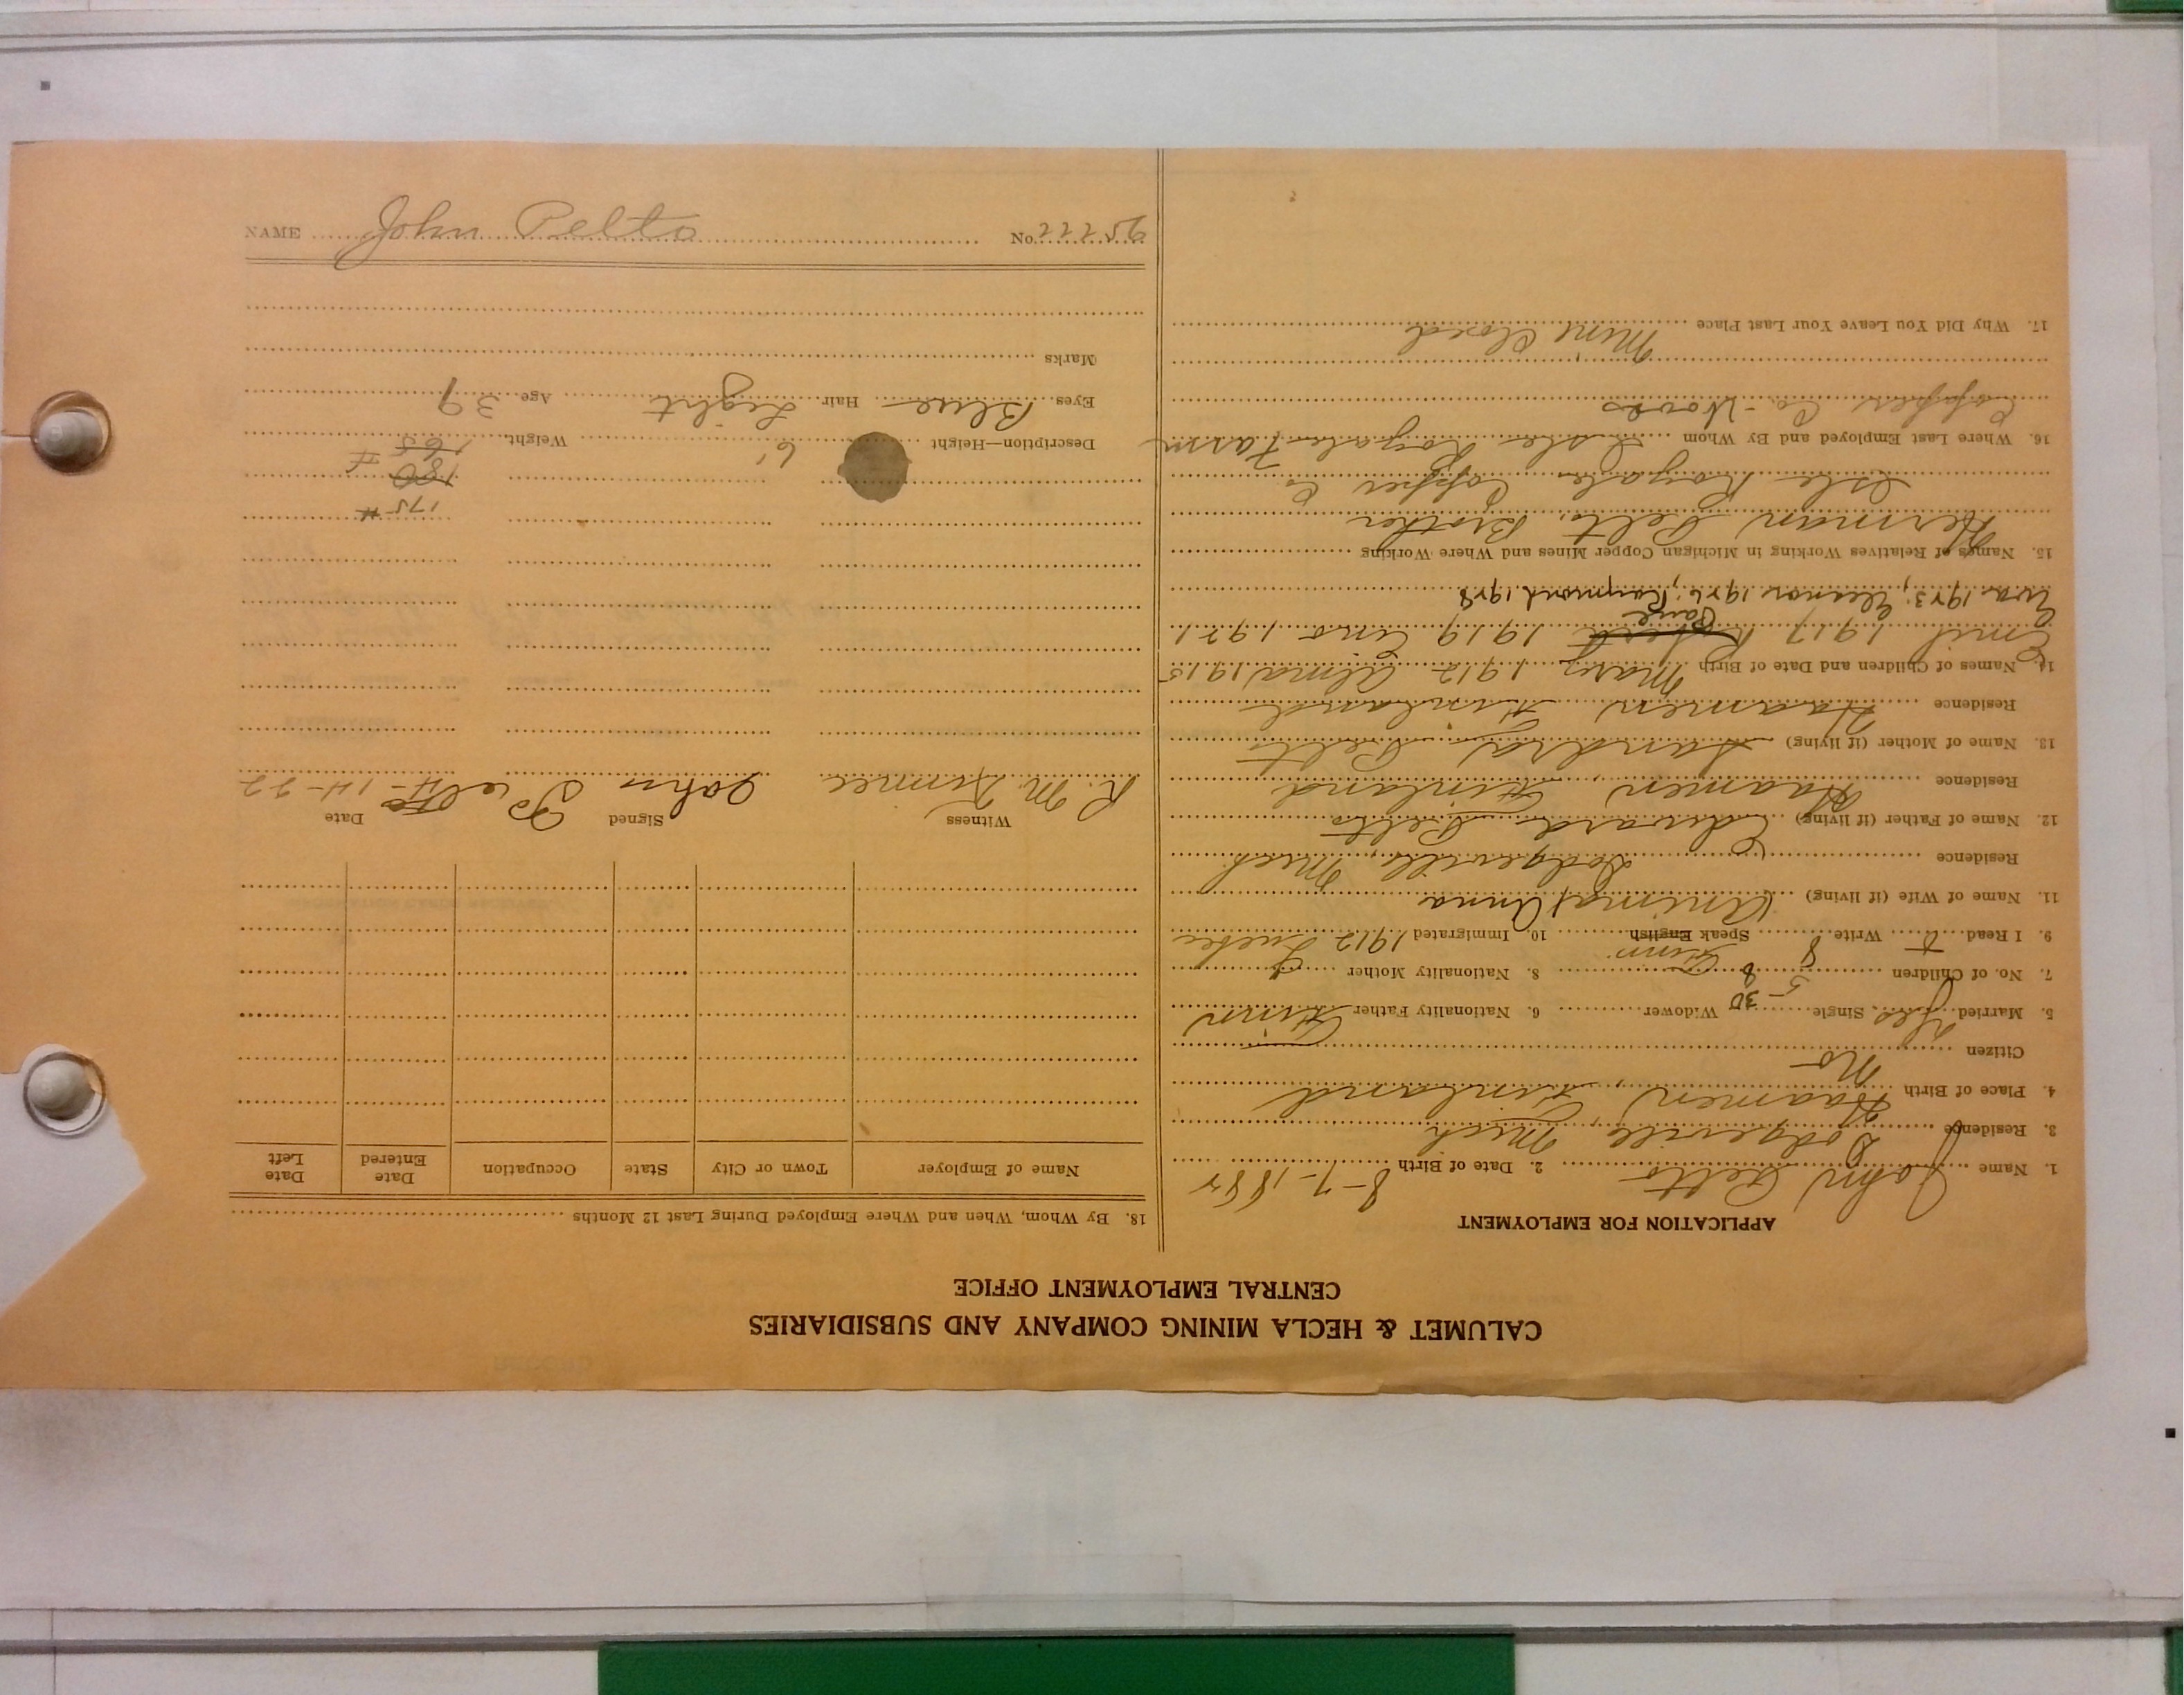 CALUMET & HECLA MINING COMPANY AND SUBSIDIARIES
CENTRAL EMPLOYMENT OFFICE
APPLICATION FOR EMPLOYMENT
1. Name John Pelto 2. Date of Birth 8-7-188
3. Residence Dodgeville, Mich
4. Place of Birth Haamen, Finland
Citizen No
5. Married Yes Single Widower 6. Nationality Father Finn
5-30
7. No. of Children 8 8. Nationality Mother
Finn
9. I Read Write Speak English 10. Immigrated 1912 Quebec
11. Name of Wife (if living) Anna
Residence Dodgeville, Mich
12. Name of Father (if living) Edward Pelto
Residence Haamen, Finland
13. Name of Mother (if living) Sandra Pelto
Residence Haamen Finland
14. Names of Children and Date of Birth Mary 1912 Alma 1915
Emil 1917 1919 Eino 1921
Eva 1923; Eleanor 1926; Raymond 1928
15. Names of Relatives Working in Michigan Copper Mines and Where Working
Herman Pelto, Brother
Isle Royale Copper Co
16. Where Last Employed and By Whom Isle Royale Farm
Copper Co - Woods
17. Why Did You Leave Your Last Place Mine Closed
18. By Whom, When and Where Employed During Last 12 Months
Name of Employer Town or City State Occupation Date Entered Date Left
Witness Signed Date
R. M. John Pelto
175 #
180
165 #
Description—Height 6' Weight
Eyes Blue Hair Light Age 39
Marks
NAME John Pelto No. 22259